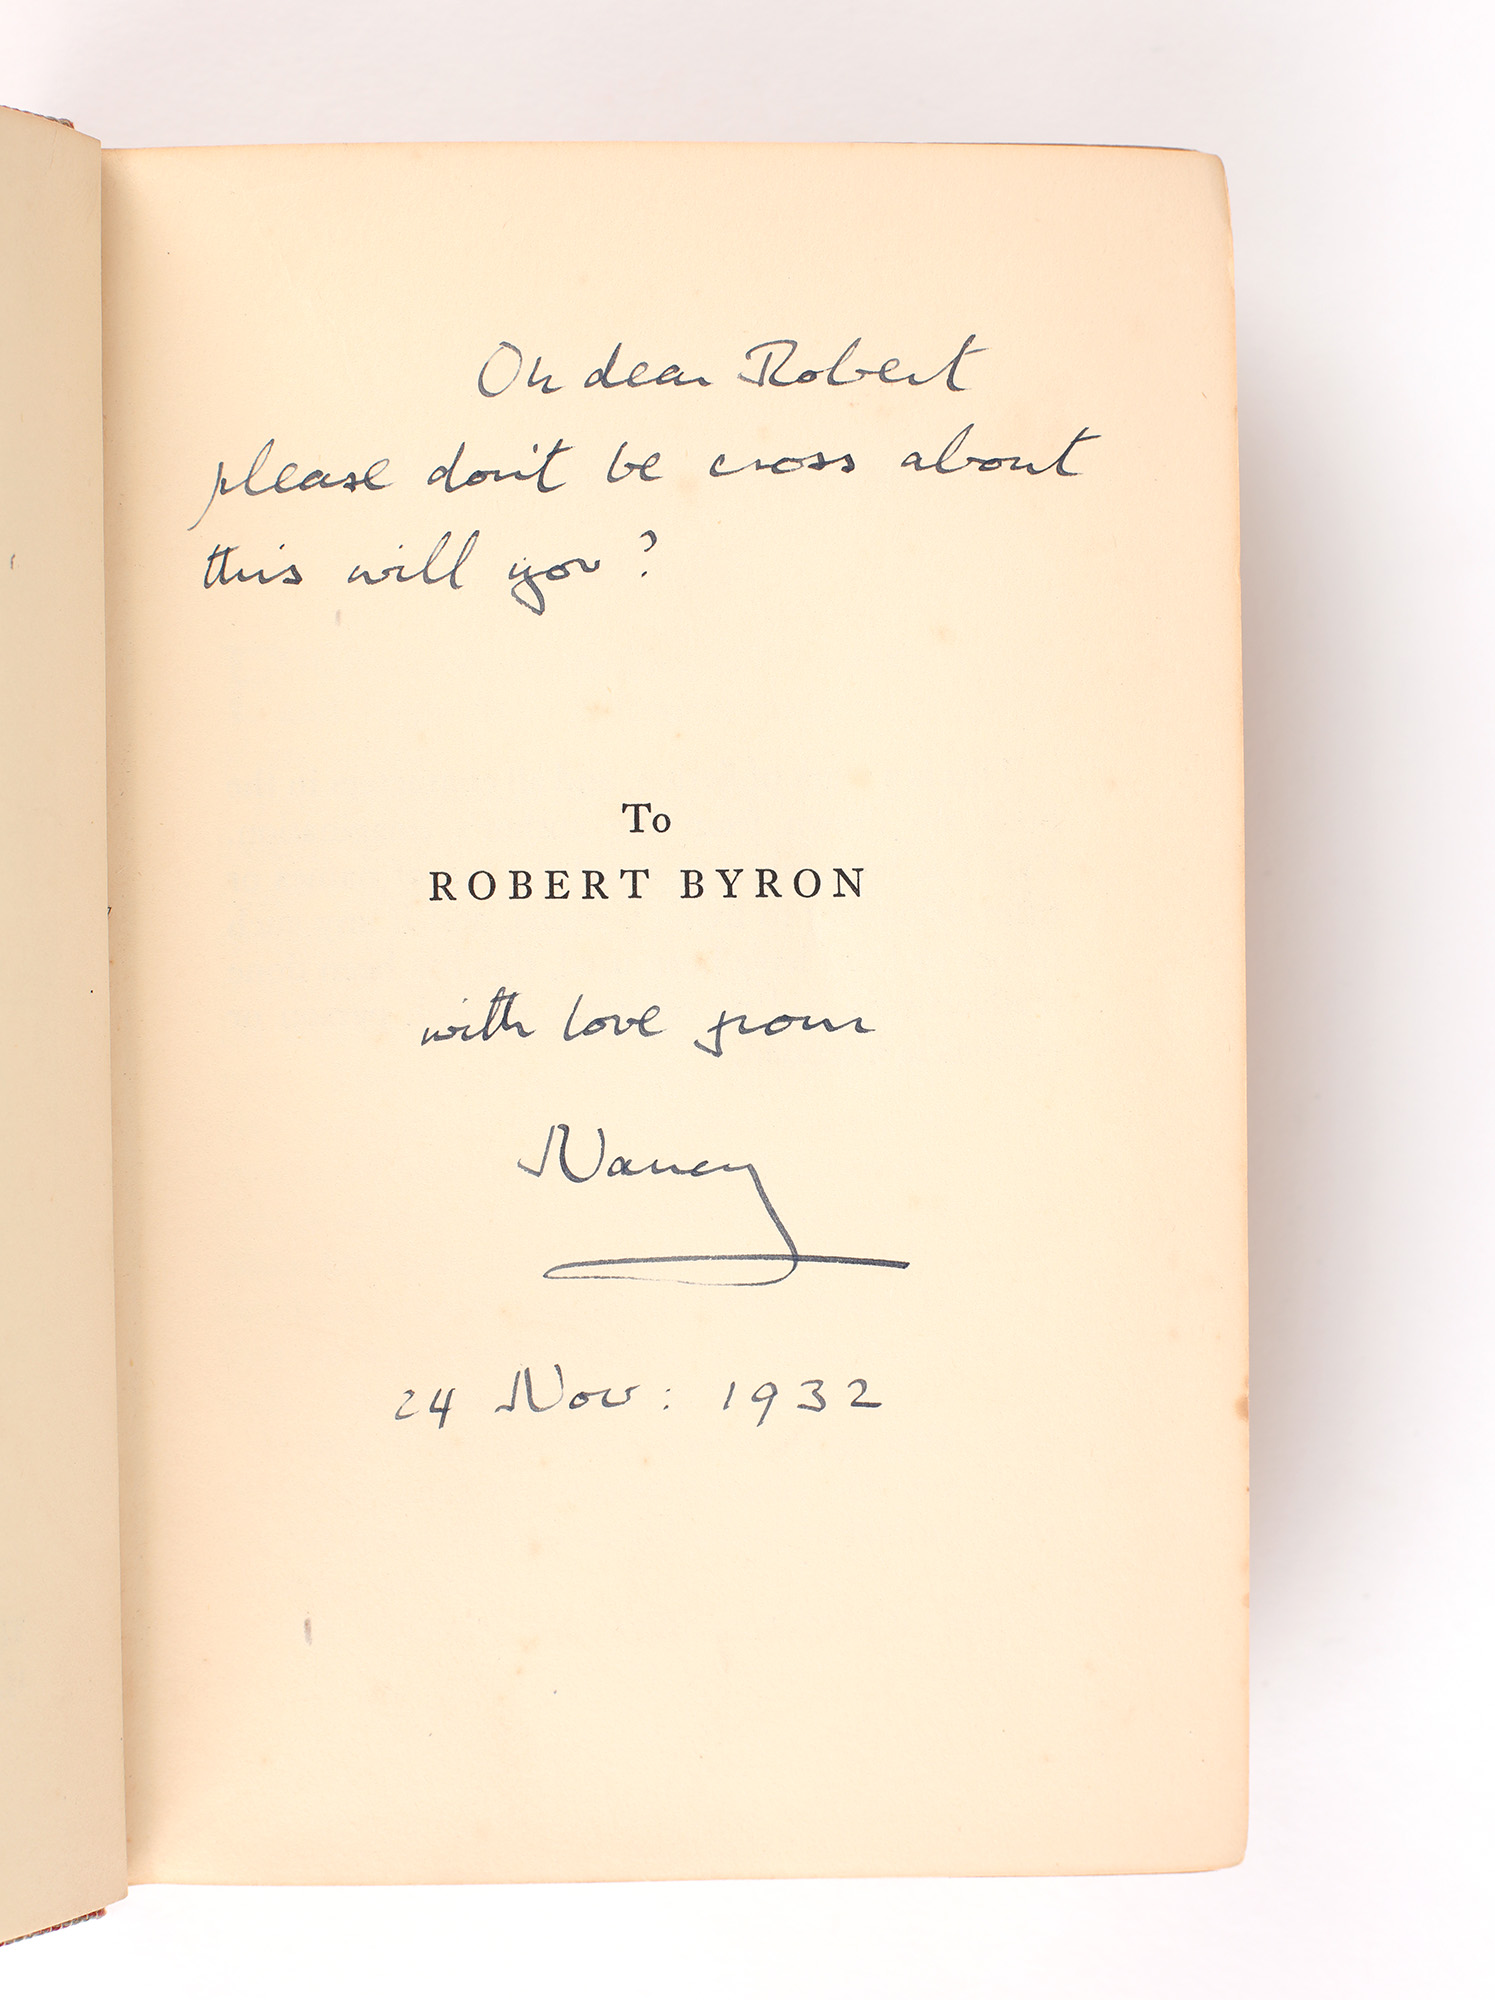 Oh dear Robert
please don't be cross about
this will you?
To
ROBERT BYRON
with love from
Nancy
24 Nov: 1932